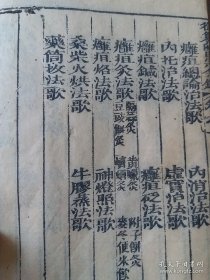 癰疽總論治法歌 內消治法歌
內托治法歌 虛實治法歌
癰疽鍼法歌 癰疽砭法歌
癰疽灸法歌 黃蠟灸 附子餅灸
豆豉餅灸 蠐螬灸
癰疽烙法歌 神燈照法歌
桑柴火烘法歌 牛膠蒸法歌
藥筒拔法歌